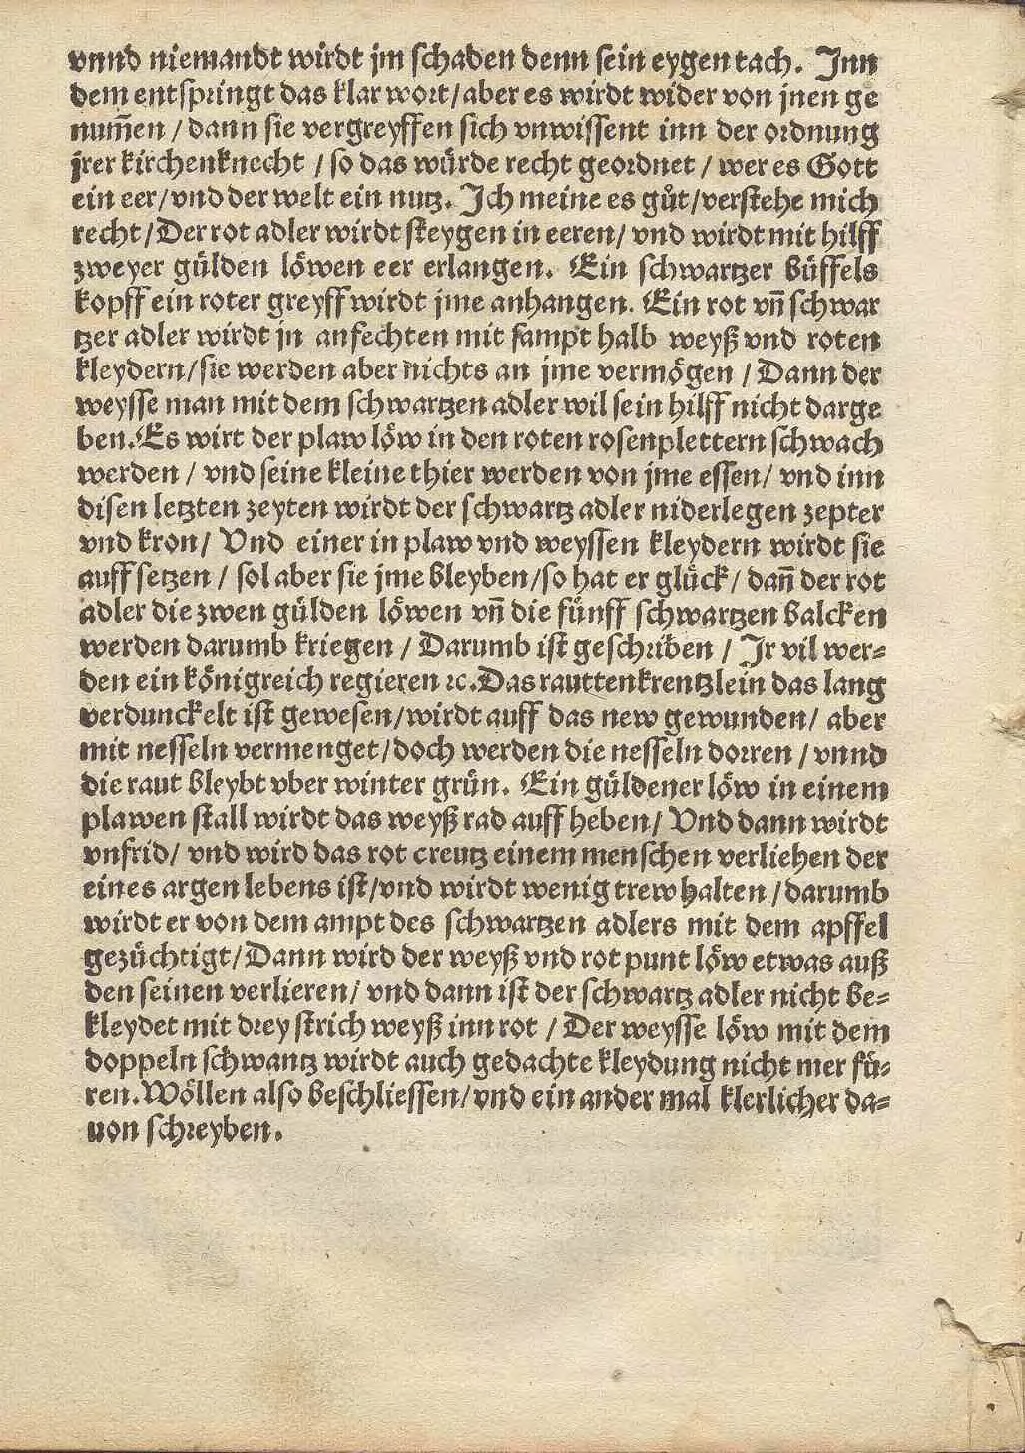 vnnd niemandt wirdt jm schaden denn sein eygen tach. Inn
dem entspringt das klar wort/ aber es wirdt wider von jnen ge
num̄en / dann sie vergreyffen sich vnwissent inn der ordnung
jrer kirchenknecht / so das würde recht geordnet / wer es Gott
ein eer/ vnd der welt ein nutz. Ich meine es gůt/ verstehe mich
recht/ Der rot adler wirdt steygen in eeren/ vnd wirdt mit hilff
zweyer gülden löwen eer erlangen. Ein schwartzer büffels
kopff ein roter greyff wirdt jme anhangen. Ein rot vn̄ schwar
tzer adler wirdt jn anfechten mit sampt halb weyß vnd roten
kleydern/ sie werden aber nichts an jme vermögen / Dann der
weysse man mit dem schwartzen adler wil sein hilff nicht darge
ben. Es wirt der plaw löw in den roten rosenplettern schwach
werden / vnd seine kleine thier werden von jme essen/ vnd inn
disen letzten zeyten wirdt der schwartz adler niderlegen zepter
vnd kron/ Vnd einer in plaw vnd weyssen kleydern wirdt sie
auff setzen / sol aber sie jme bleyben/ so hat er glück/ dan̄ der rot
adler die zwen gülden löwen vn̄ die fünff schwartzen balcken
werden darumb kriegen / Darumb ist geschriben / Ir vil wer=
den ein königreich regieren ꝛc. Das rauttenkrentzlein das lang
verdunckelt ist gewesen/ wirdt auff das new gewunden/ aber
mit nesseln vermenget/ doch werden die nesseln dorren / vnnd
die raut bleybt vber winter grün. Ein güldener löw in einem
plawen stall wirdt das weyß rad auff heben/ Vnd dann wirdt
vnfrid/ vnd wird das rot creutz einem menschen verliehen der
eines argen lebens ist/ vnd wirdt wenig trew halten / darumb
wirdt er von dem ampt des schwartzen adlers mit dem apffel
gezüchtigt/ Dann wird der weyß vnd rot punt löw etwas auß
den seinen verlieren/ vnd dann ist der schwartz adler nicht be=
kleydet mit drey strich weyß inn rot / Der weysse löw mit dem
doppeln schwantz wirdt auch gedachte kleydung nicht mer fü=
ren. Wöllen also beschliessen/ vnd ein ander mal klerlicher da=
uon schreyben.